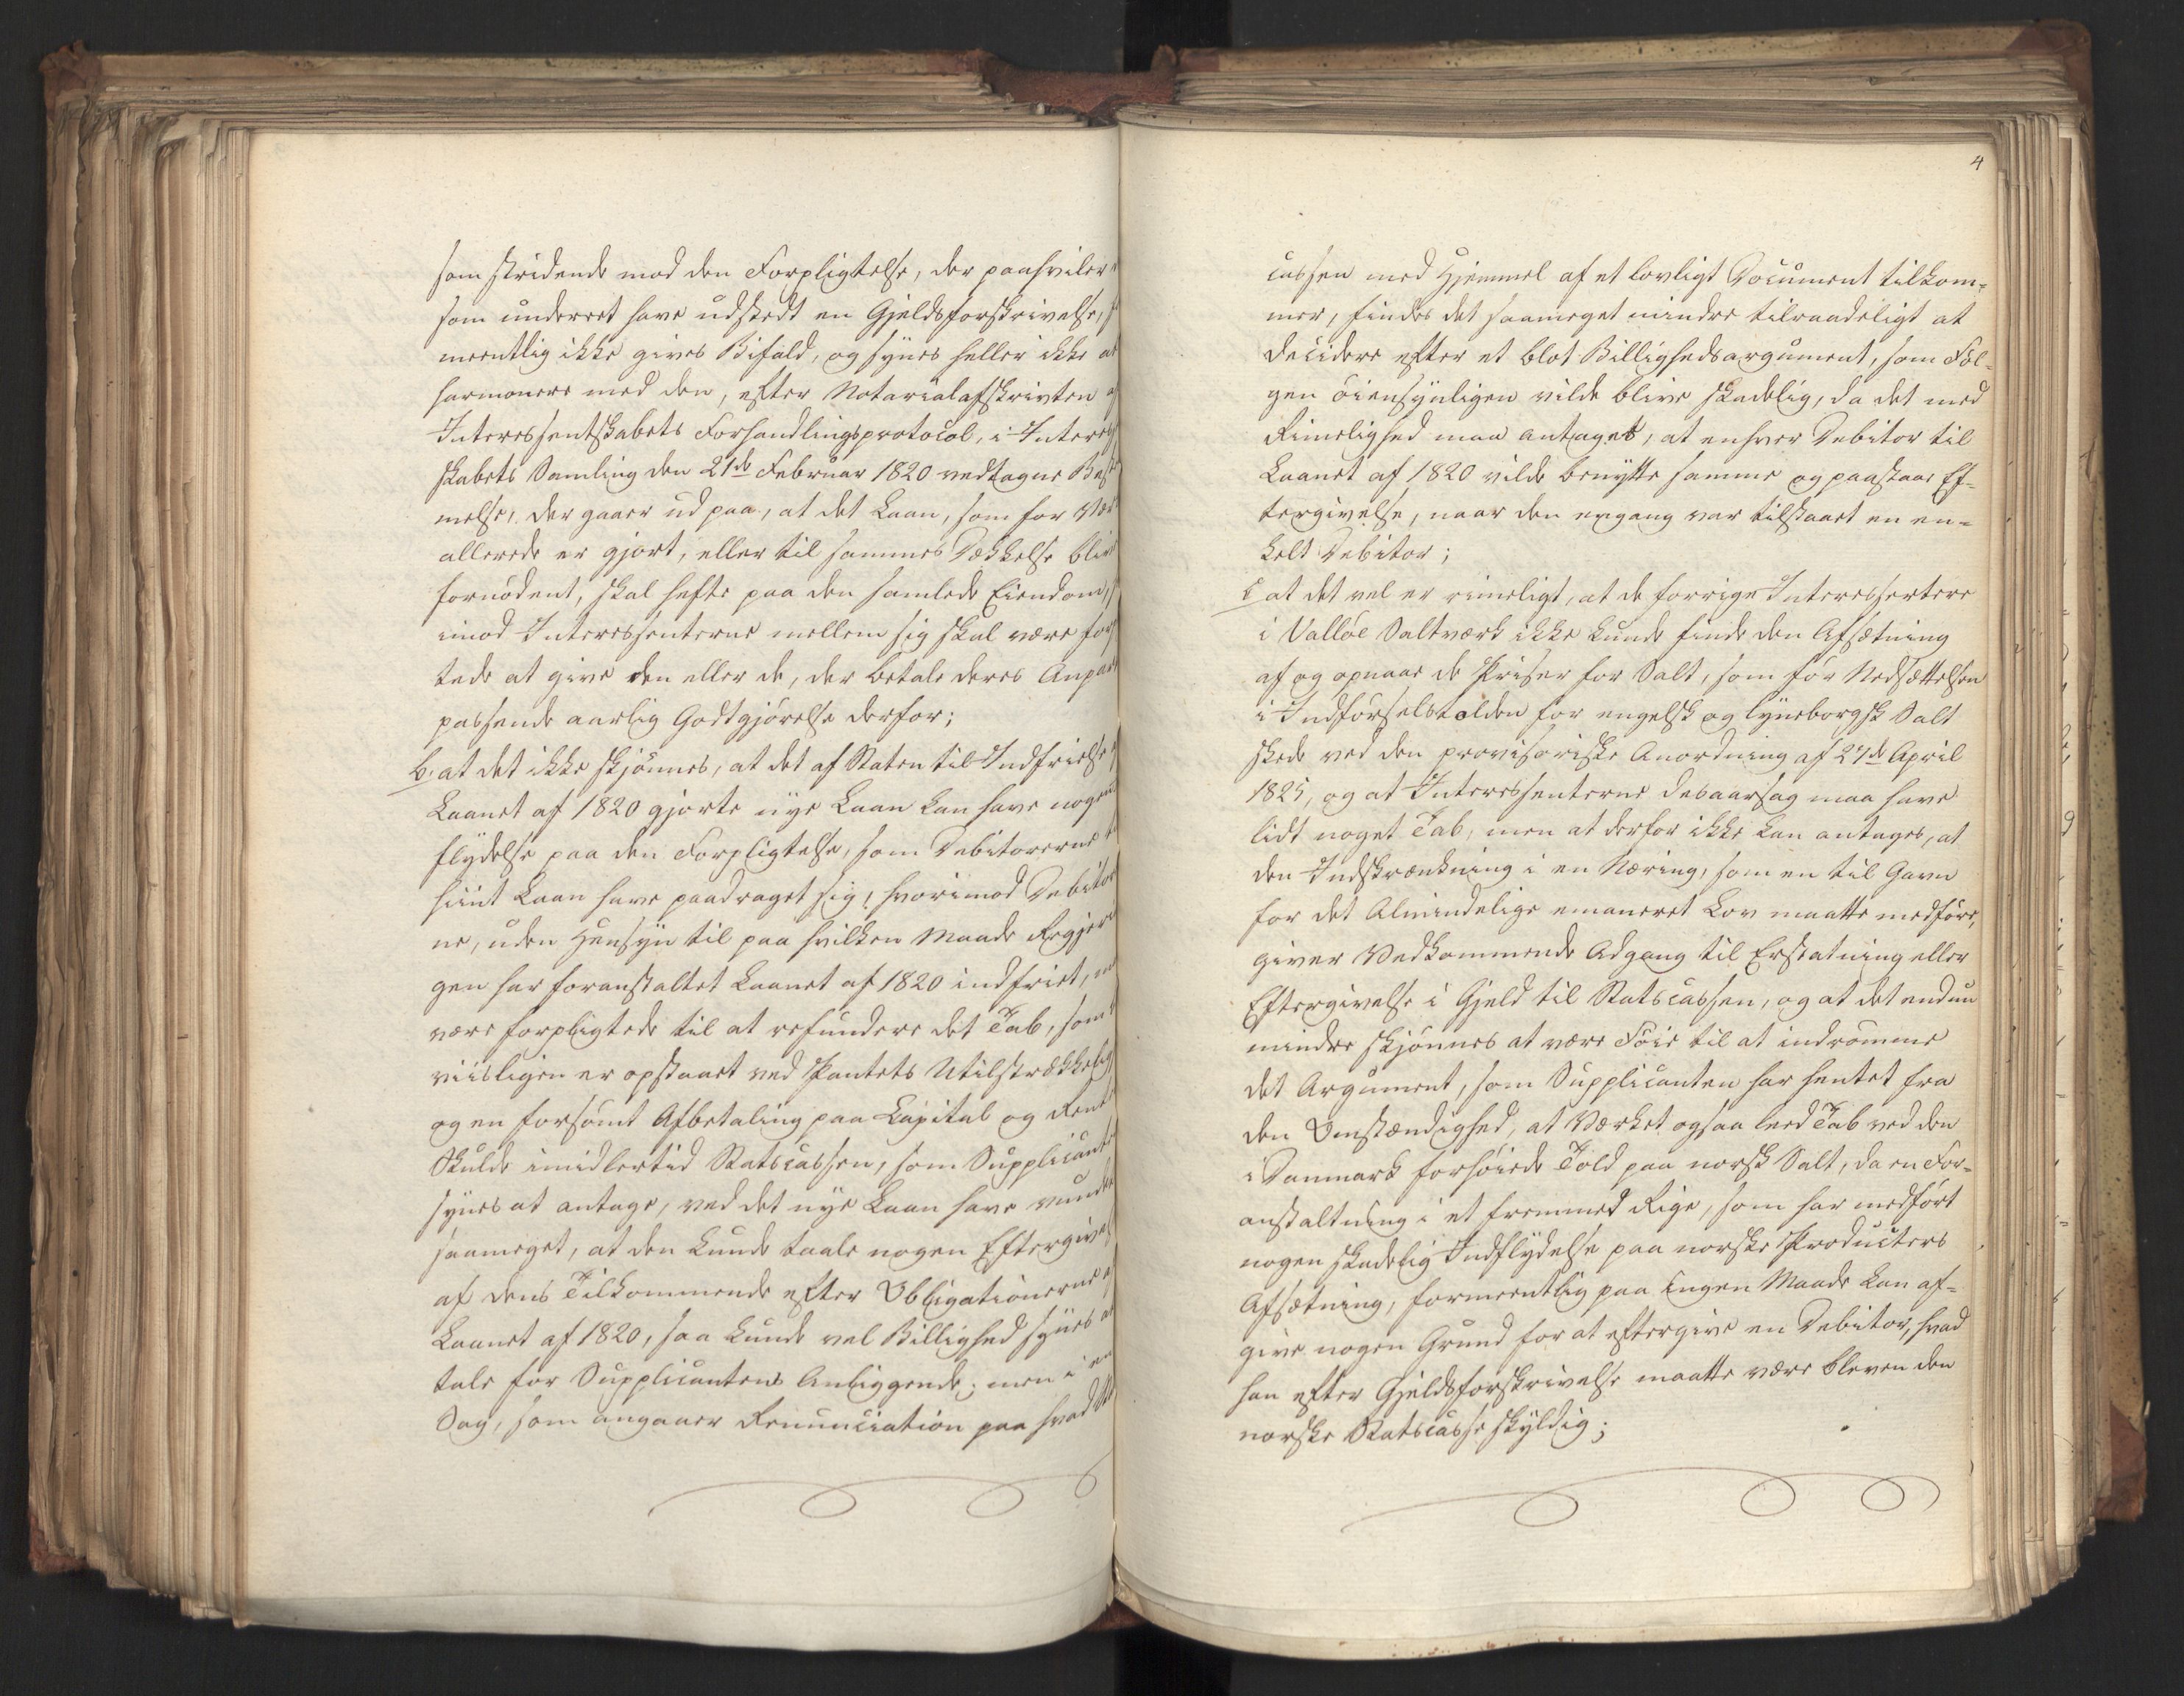 som stridende mod den Forpligtelse, der paahviler
som underret have udstedt en Gjeldsforskrivelse,
meentlig ikke gives Bifald, og synes heller ikke at
harmonere med den, efter Notarialafskrivten af
Interessentskabets Forhandlingsprotocol, i Interes
skabets Samling den 21de Februar 1820 vedtagne Be
melse, der gaaer ud paa, at det Laan, som for Vær
allerede er gjort, eller til sammes Dækkelse bliv
fornødent, skal hefte paa den samlede Eiendom,
imod Interessenterne mellem sig skal være for
tede at give den eller de, der betale deres Anpar
passende aarlig Godtgjørelse derfor;
b. at det ikke skjønnes, at det af Staten til Indfrielse
Laanet af 1820 gjorte nye Laan kan have nogen
flydelse paa den Forpligtelse, som Debitorerne
hiint Laan have paadraget sig, hvorimod Debitor
ne, uden Hensyn til paa hvilken Maade Regjer
gen har foranstaltet Laanet af 1820 indfriet,
være forpligtede til at refundere det Tab, som
viisligen er opstaaet ved Pantets Utilstrækkelig
og en forsømt Afbetaling paa Capital og Rent
Skulde imidlertid Statscassen, som Supplicant
synes at antage, ved det nye Laan have vundet
saameget, at den kunde taale nogen Eftergivel
af dens Tilkommende efter Obligationerne
Laanet af 1820, saa kunde vel Billighed synes at
tale for Supplicantens Anliggende; men i en
Sag, som angaaer Renunciation paa hvad
4
cassen med Hjemmel af et lovligt Document tilkom-
mer, findes det saameget mindre tilraadeligt at
decidere efter et blot Billighedsargument, som Føl-
gen øiensynligen vilde blive skadelig, da det med
Rimelighed maa antages, at enhver Debitor til
Laanet af 1820 vilde benytte samme og paastaae Ef-
tergivelse, naar den engang var tilstaaet en en-
kelt Debitor;
c at det vel er rimeligt, at de forrige Interessentere
i Valløe Saltværk ikke kunde finde den Afsætning
af og opnaae de Priser for Salt, som før Nedsættelsen
i Indførselstolden for engelsk og lyneborgsk Salt
skede ved den provisoriske Anordning af 27de April
1825, og at Interessenterne desaarsag maa have
lidt noget Tab, men at derfor ikke kan antages, at
den Indskrænkning i en Næring, som en til Gavn
for det Almindelige emaneret Lov maatte medføre,
giver Vedkommende Adgang til Erstatning eller
Eftergivelse i Gjeld til Statscassen, og at det endnu
mindre skjønnes at være Føie til at indrømme
det Argument, som Supplicanten har hentet fra
den Omstændighed, at Værket ogsaa leed Tab ved den
i Danmark forhøiede Told paa norsk Salt, da en For-
anstaltning i et fremmed Rige, som har medført
nogen skadelig Indflydelse paa norske Producters
Afsætning, formeentlig paa ingen Maade kan af-
give nogen Grund for at eftergive en Debitor, hvad
han efter Gjeldsforskrivelse maatte være bleven den
norske Statscasse skyldig;